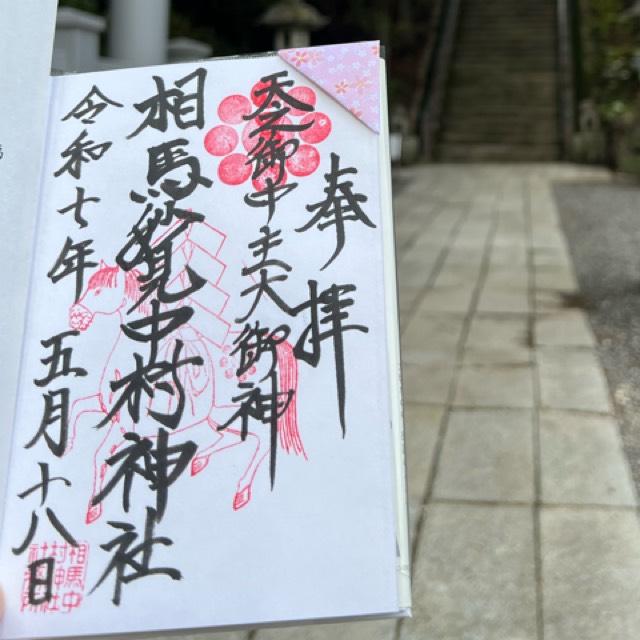 奉拝
天之御中主大御神
相馬妙見中村神社
令和七年 五月十八日
相馬中
村神社